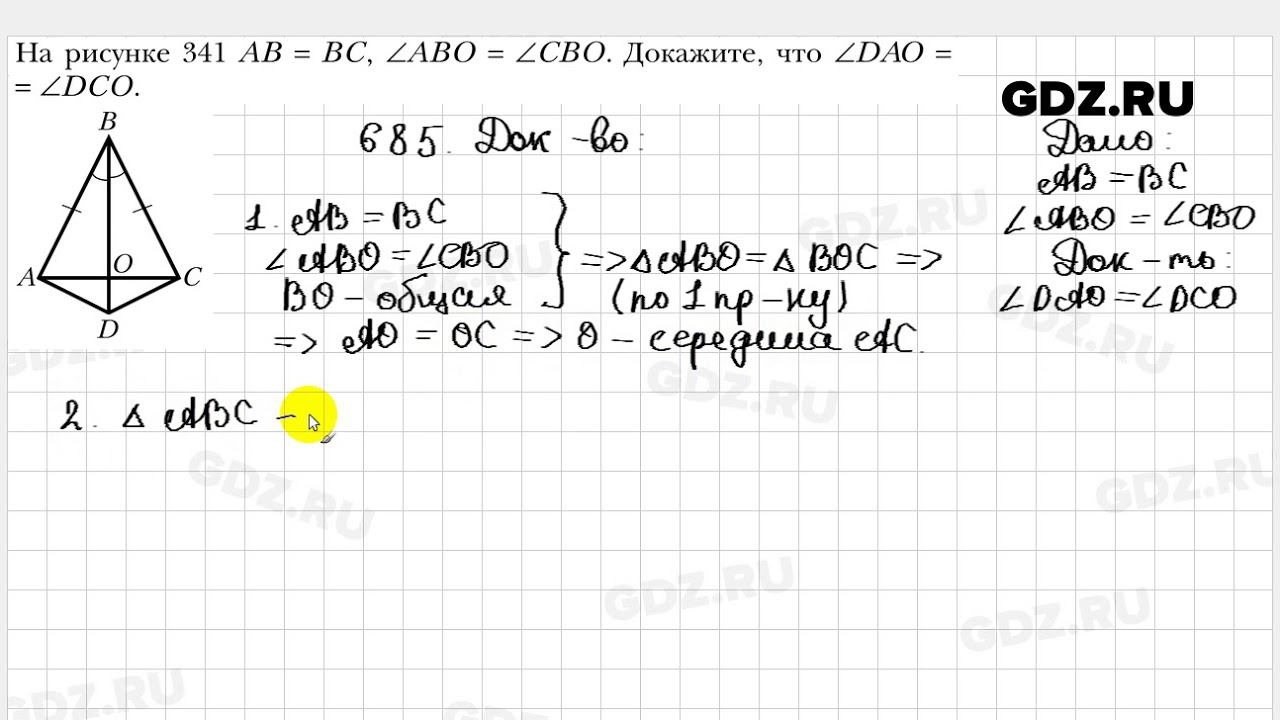 На рисунке 341 AB = BC, ∠ABO = ∠CBO. Докажите, что ∠DAO =
= ∠DCO.
GDZ.RU
B
A
O
C
D
685. Док-во:
1. AB = BC
∠ABO = ∠CBO
BO - общая
=> △ABO = △BOC =>
(по 1 пр-ку)
=> AO = OC => O - середина AC.
2. △ABC -
Дано:
AB = BC
∠ABO = ∠CBO
Док-ть:
∠DAO = ∠DCO
GDZ.RU
GDZ.RU
GDZ.RU
GDZ.RU
GDZ.RU
GDZ.RU
GDZ.RU
GDZ.RU
GDZ.RU